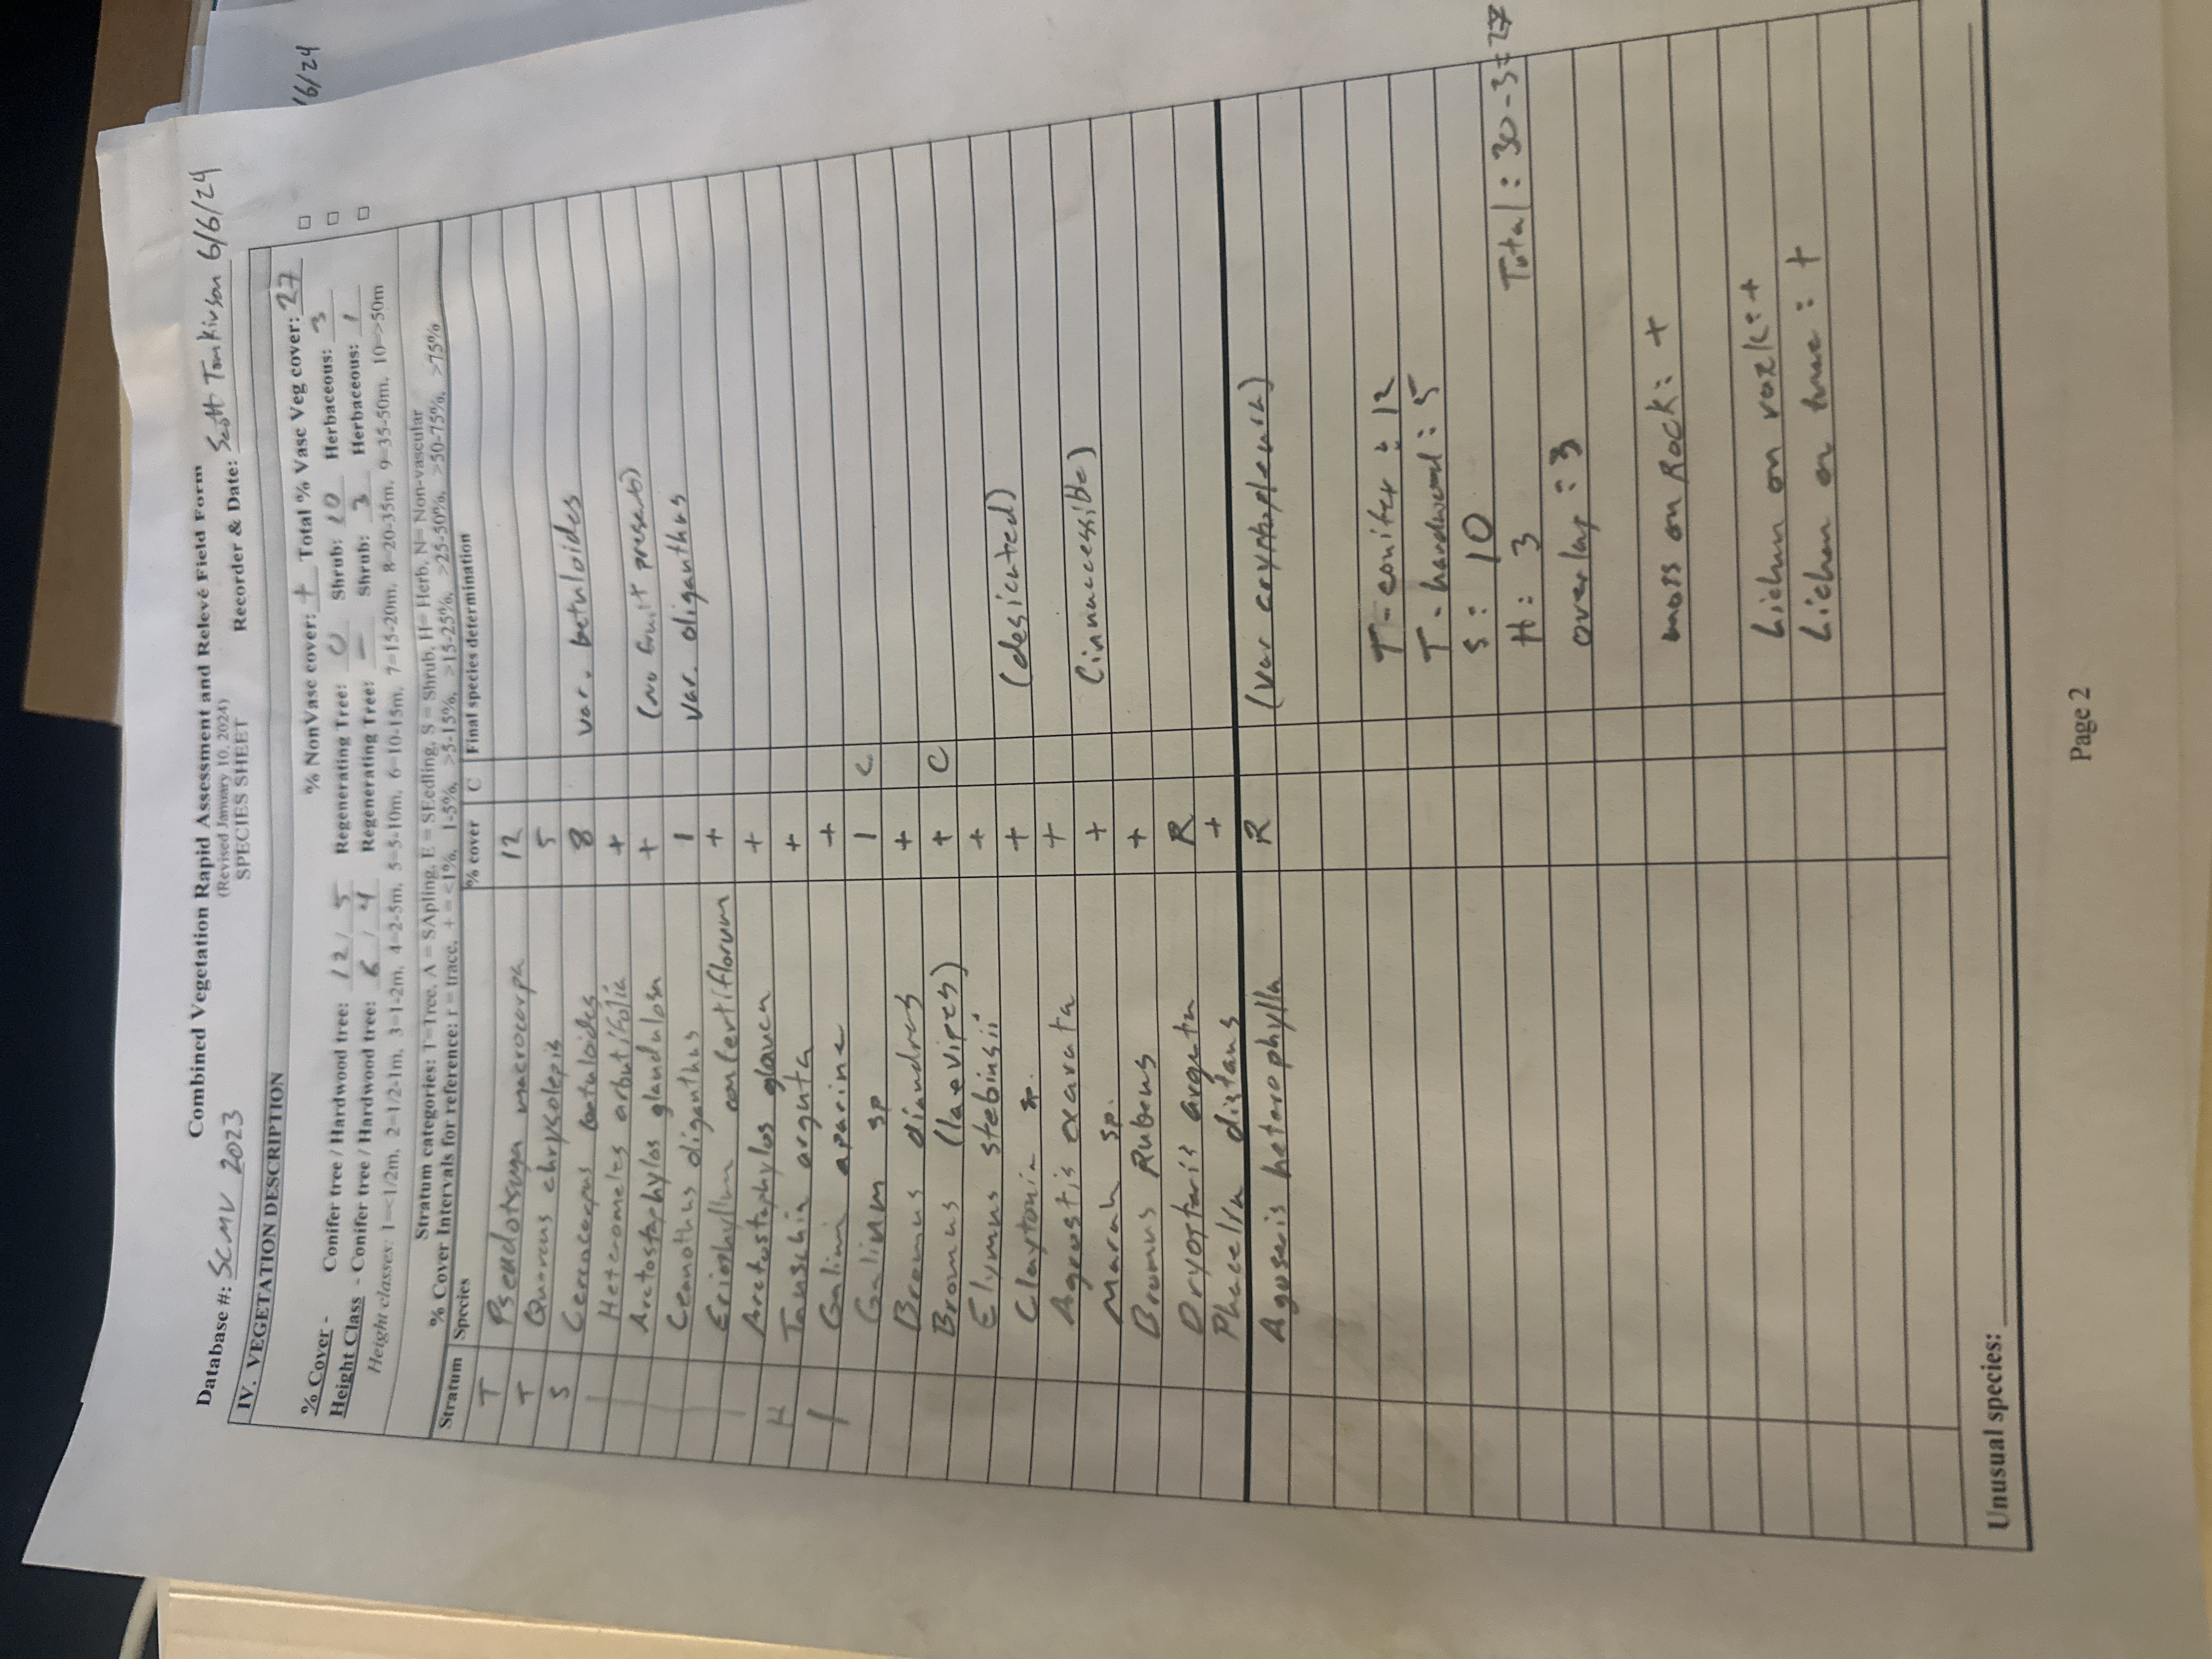 16/24
Combined Vegetation Rapid Assessment and Relevé Field Form
(Revised January 10, 2024)
Database #: SCMV 2023 SPECIES SHEET Recorder & Date: Scott Tomkinson 6/6/24
IV. VEGETATION DESCRIPTION
% NonVasc cover: + Total % Vasc Veg cover: 27
% Cover - Conifer tree / Hardwood tree: 12 / 5 Regenerating Tree: 0 Shrub: 10 Herbaceous: 3
Height Class - Conifer tree / Hardwood tree: 6 / 4 Regenerating Tree: — Shrub: 3 Herbaceous: 1
Height classes: 1=<1/2m, 2=1/2-1m, 3=1-2m, 4=2-5m, 5=5-10m, 6=10-15m, 7=15-20m, 8=20-35m, 9=35-50m, 10=>50m
Stratum categories: T=Tree, A = SApling, E = SEedling, S = Shrub, H= Herb, N= Non-vascular
% Cover Intervals for reference: r = trace, + = <1%, 1-5%, >5-15%, >15-25%, >25-50%, >50-75%, >75%
Stratum Species % cover C Final species determination
T Pseudotsuga macrocarpa 12
T Quercus chrysolepis 5
S Cercocarpus betuloides 8 var. betuloides
Heteromeles arbutifolia +
Arctostaphylos glandulosa + (no fruit present)
Ceanothus oliganthus 1 var. oliganthus
Eriophyllum confertiflorum +
Arctostaphylos glauca +
H Tauschia arguta +
Galium aparine +
Galium sp 1 C
Bromus diandrus +
Bromus (laevipes) + C
Elymus stebinsii +
Claytonia sp. + (desicated)
Agrostis exarata +
Marah sp. + (innaccessible)
Bromus Rubens +
Dryostaris arguta R
Phacelia distans +
Agoseris heterophylla R (var cryptopleura)
T-conifer: 12
T-hardwood: 5
S: 10
H: 3 Total: 30-3=27
overlap: 3
moss on Rock: +
Lichen on rock: +
Lichen on tree: +
Unusual species:
Page 2